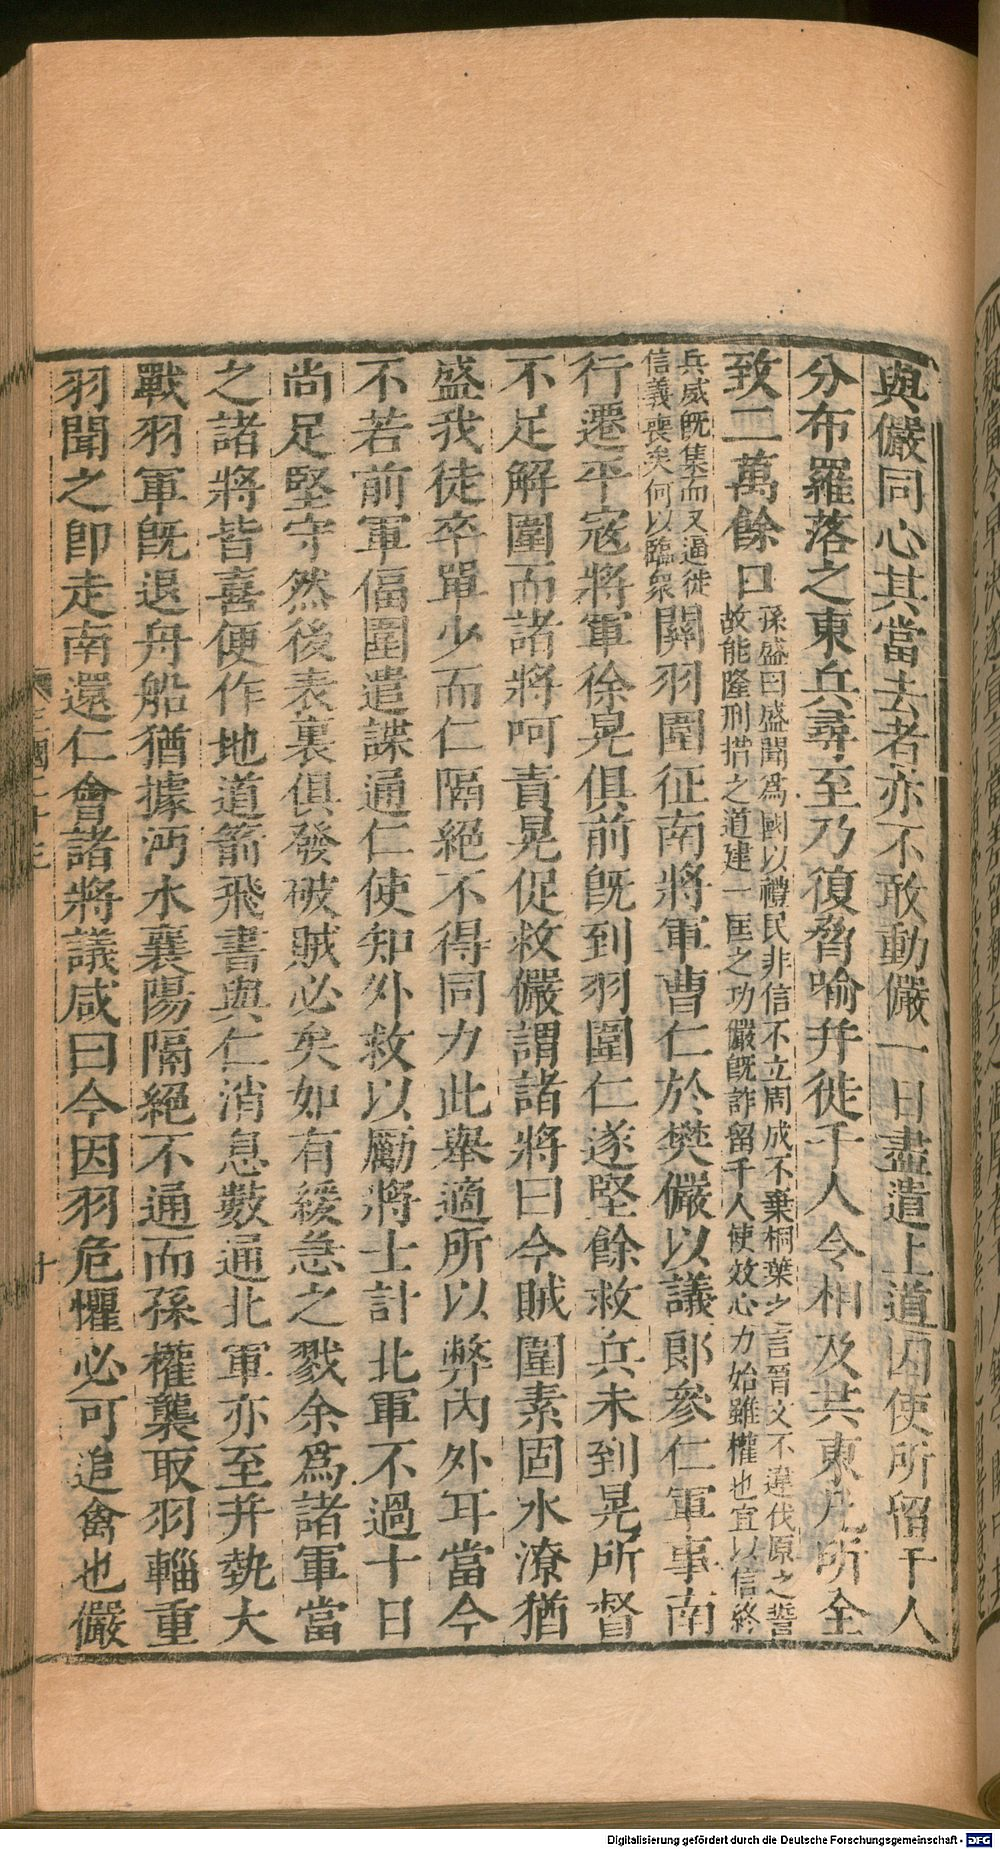 與儼同心其當去者亦不敢動儼一日盡遣上道因使所留千人
分布羅落之東兵尋至乃復脅喻并徙千人令相及共東凡所全
致二萬餘口
孫盛曰盛聞爲國以禮民非信不立周成不棄桐葉之言晉文不違伐原之誓
故能隆刑措之道建一匡之功儼旣詐留千人使效心力始雖權也宜以信終
兵威旣集而又逼徙
信義喪矣何以臨衆
關羽圍征南將軍曹仁於樊儼以議郎參仁軍事南
行遷平宼將軍徐晃俱前旣到羽圍仁遂堅餘救兵未到晃所督
不足解圍而諸將呵責晃促救儼謂諸將曰今賊圍素固水潦猶
盛我徒卒單少而仁隔絕不得同力此舉適所以弊內外耳當今
不若前軍偪圍遣諜通仁使知外救以勵將士計北軍不過十日
尚足堅守然後表裏俱發破賊必矣如有緩急之戮余爲諸軍當
之諸將皆喜便作地道箭飛書與仁消息數通北軍亦至并勢大
戰羽軍旣退舟船猶據沔水襄陽隔絕不通而孫權襲取羽輜重
羽聞之卽走南還仁會諸將議咸曰今因羽危懼必可追禽也儼
十
Digitalisierung gefördert durch die Deutsche Forschungsgemeinschaft - DFG